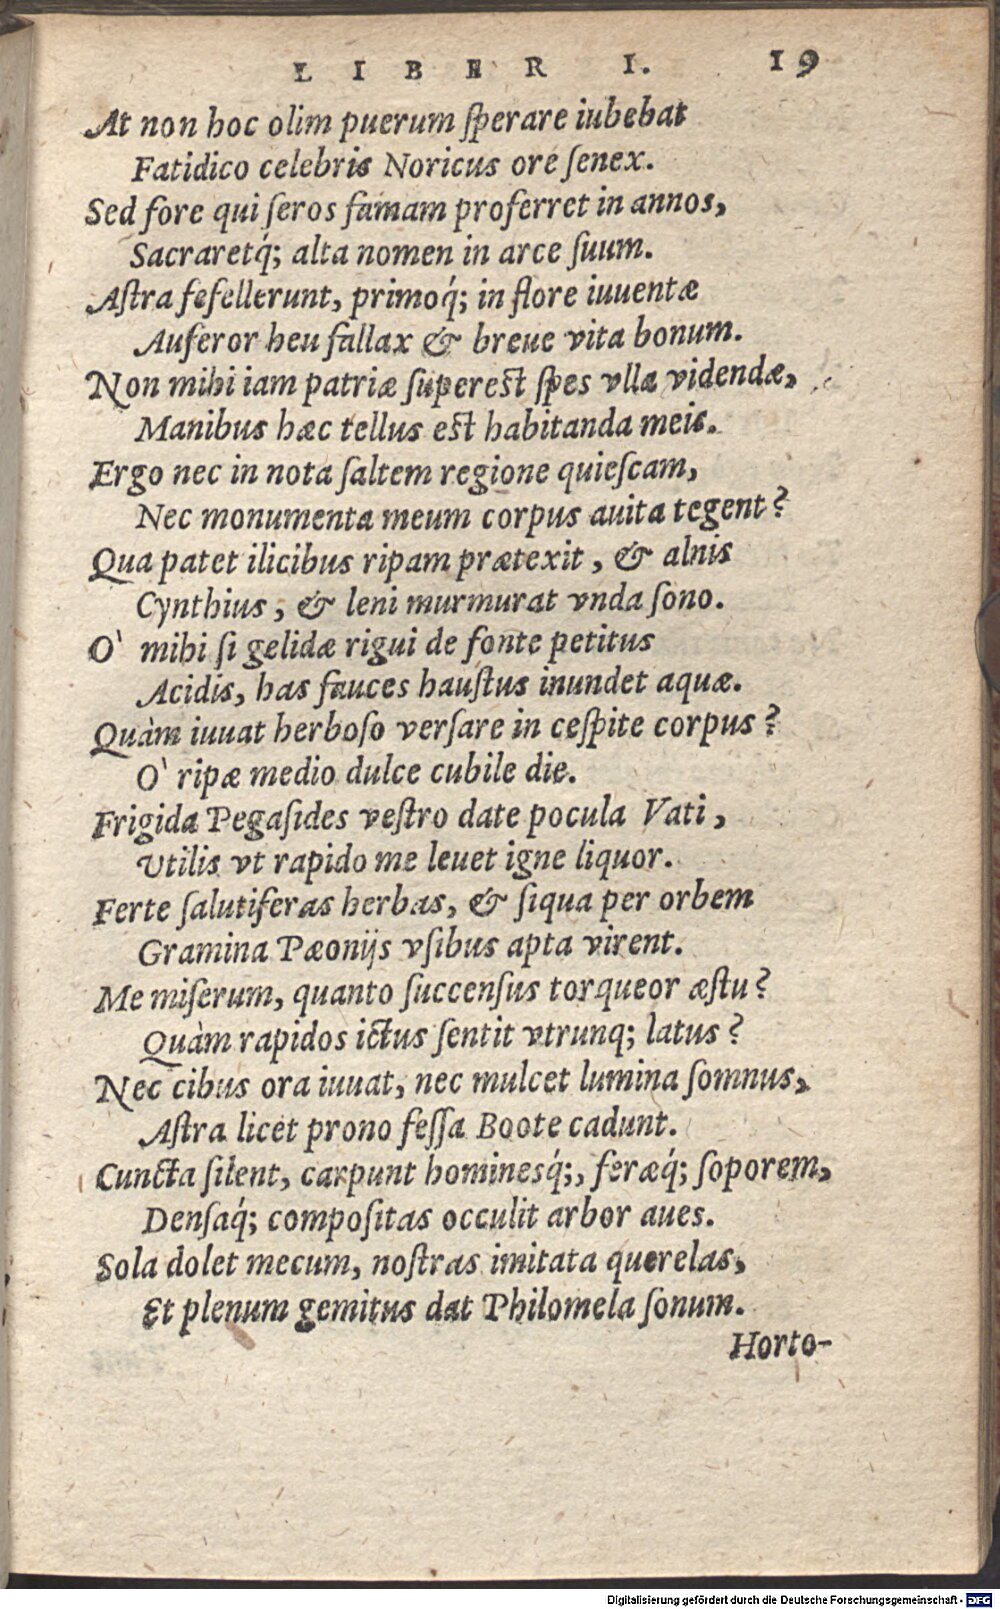 LIBER I. 19
At non hoc olim puerum ſperare iubebat
Fatidico celebris Noricus ore ſenex.
Sed fore qui ſeros famam proferret in annos,
Sacraretq́; alta nomen in arce ſuum.
Aſtra fefellerunt, primoq́; in flore iuuentæ
Auferor heu fallax & breue vita bonum.
Non mihi iam patriæ ſupereſt ſpes vlla videndæ,
Manibus hæc tellus eſt habitanda meis.
Ergo nec in nota ſaltem regione quieſcam,
Nec monumenta meum corpus auita tegent?
Qua patet ilicibus ripam prætexit, & alnis
Cynthius, & leni murmurat vnda ſono.
O' mihi ſi gelidæ rigui de fonte petitus
Acidis, has fauces hauſtus inundet aquæ.
Quàm iuuat herboſo verſare in ceſpite corpus?
O' ripæ medio dulce cubile die.
Frigida Pegaſides veſtro date pocula Vati,
Vtilis vt rapido me leuet igne liquor.
Ferte ſalutiferas herbas, & ſiqua per orbem
Gramina Pæonijs vſibus apta virent.
Me miſerum, quanto ſuccenſus torqueor æſtu?
Quàm rapidos ictus ſentit vtrunq; latus?
Nec cibus ora iuuat, nec mulcet lumina ſomnus,
Aſtra licet prono feſſa Boote cadunt.
Cuncta ſilent, carpunt hominesq́;, feræq́; ſoporem,
Denſaq́; compoſitas occulit arbor aues.
Sola dolet mecum, noſtras imitata querelas,
Et plenum gemitus dat Philomela ſonum.
Horto-
Digitalisierung gefördert durch die Deutsche Forschungsgemeinschaft - DFG